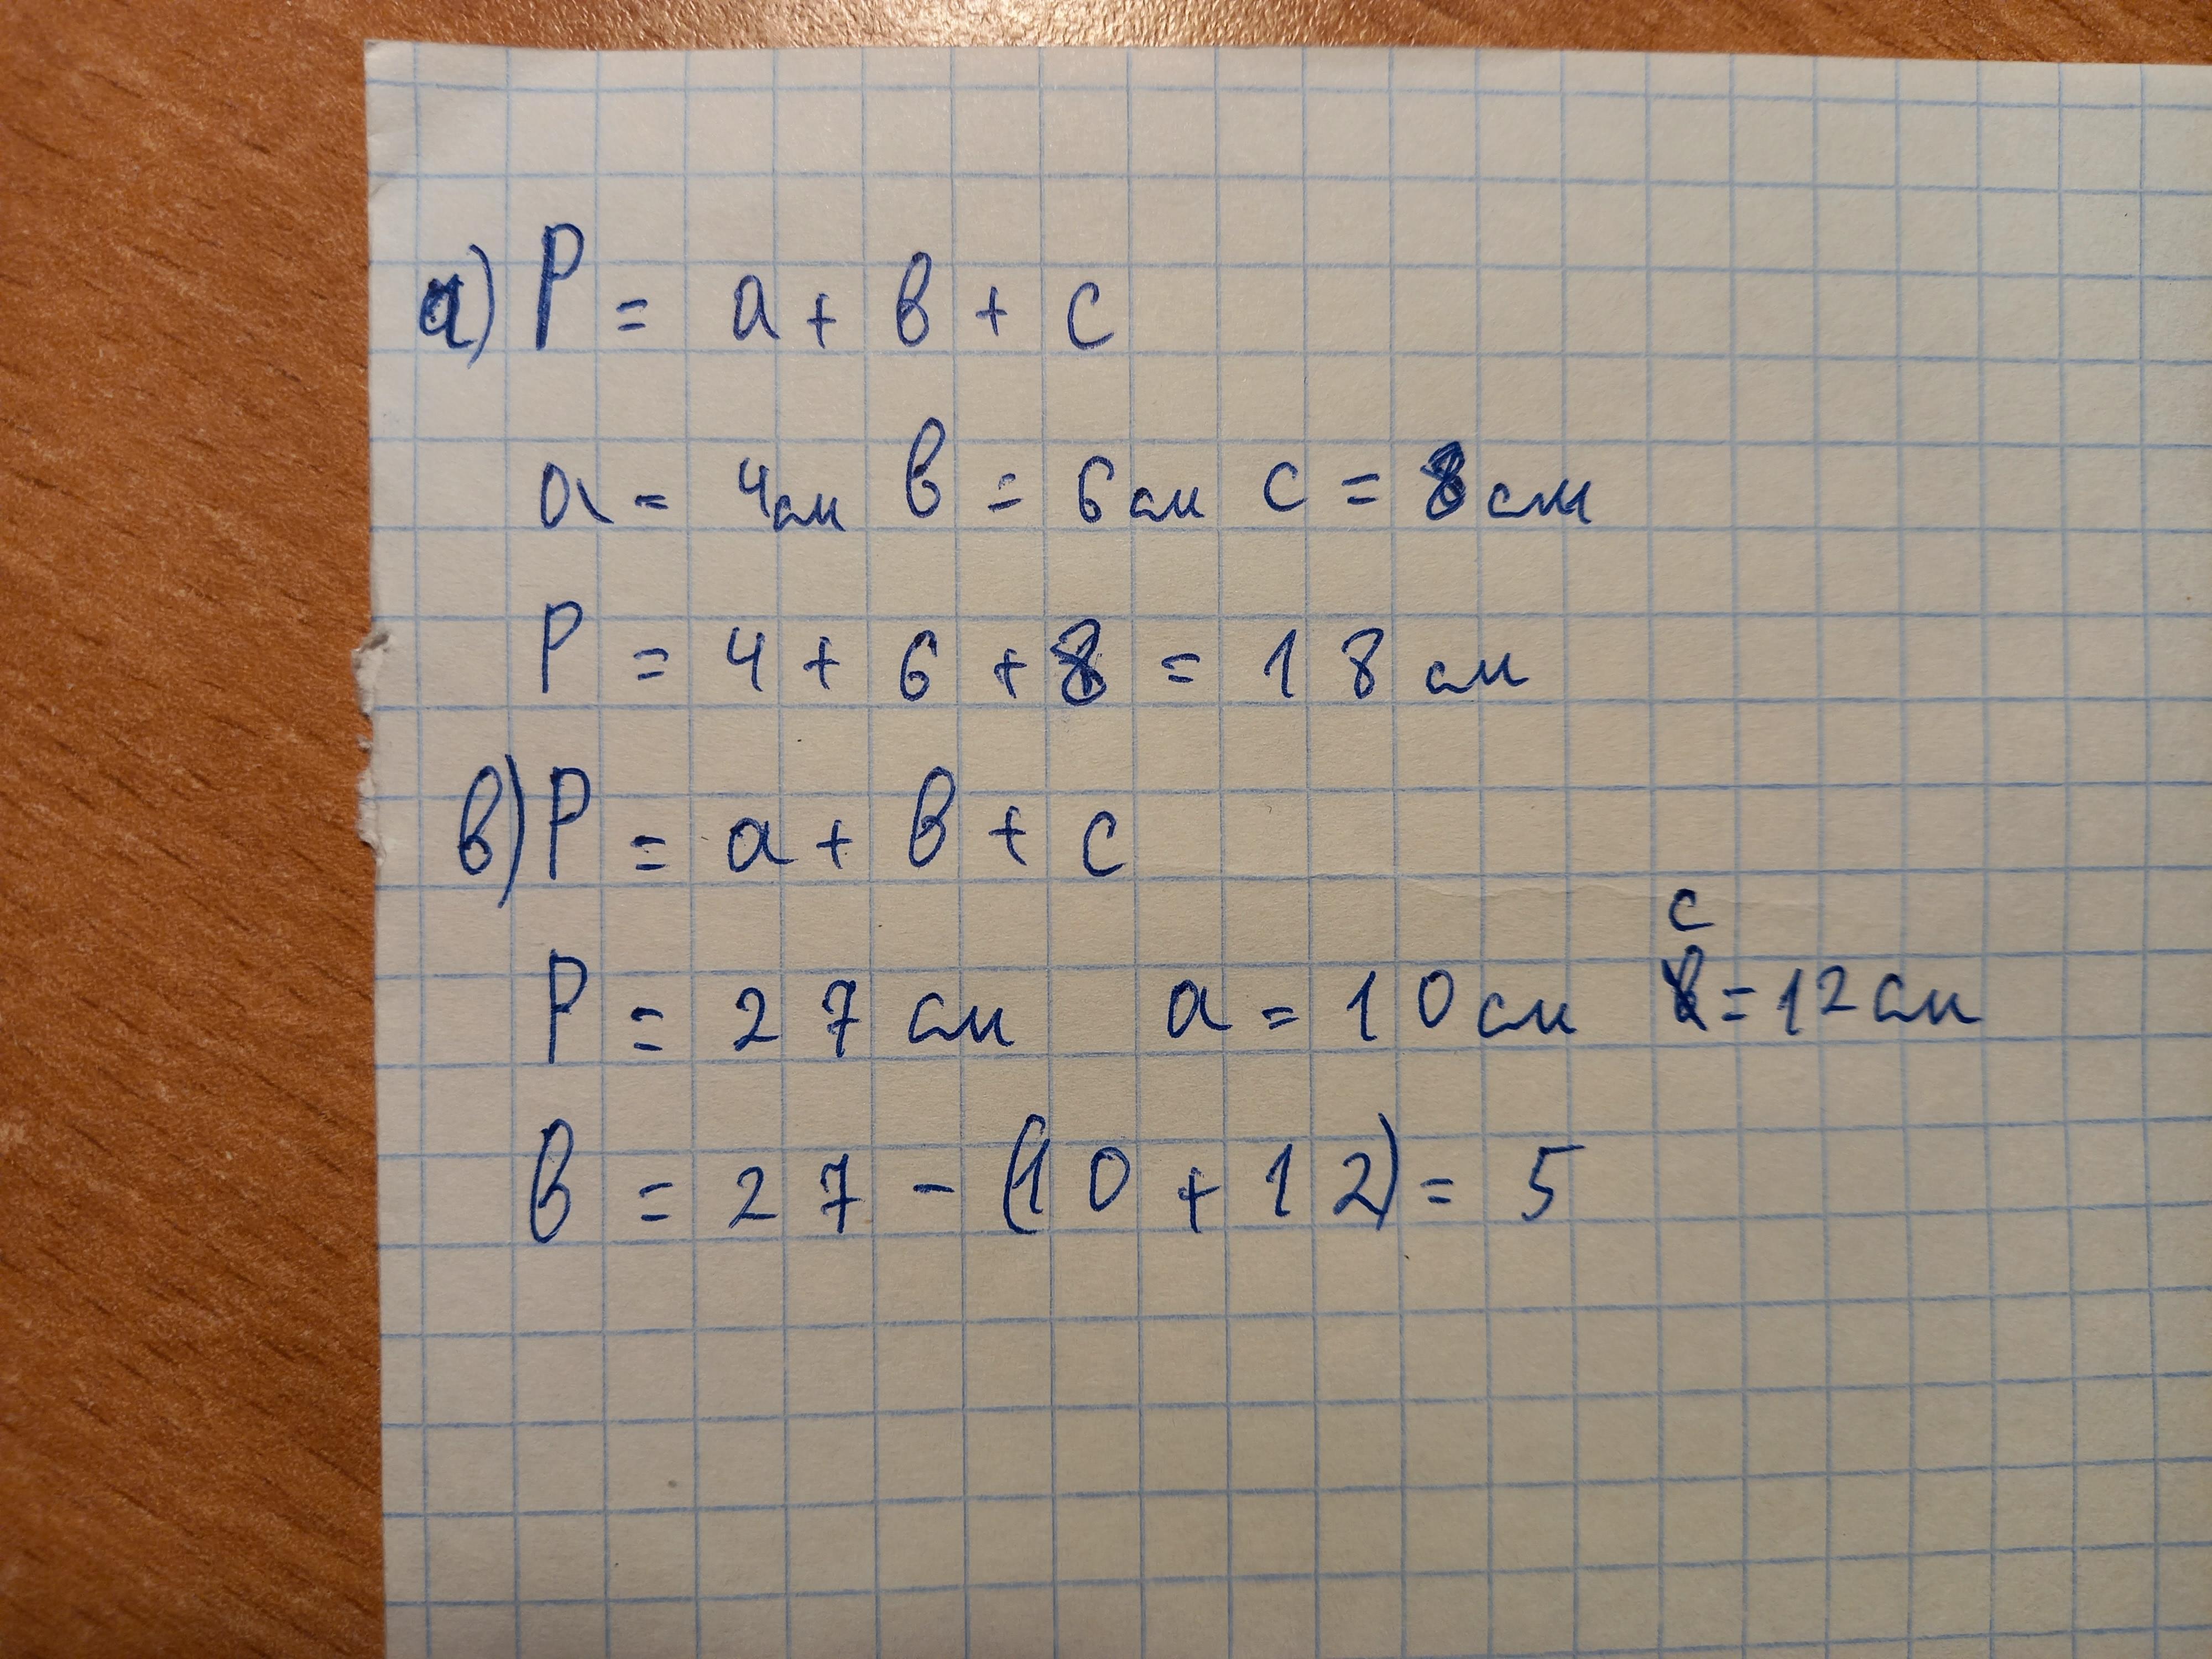 а) P = a + в + c
a = 4 см в = 6 см c = 8 см
P = 4 + 6 + 8 = 18 см
в) P = a + в + c
P = 27 см a = 10 см c = 12 см
в = 27 - (10 + 12) = 5